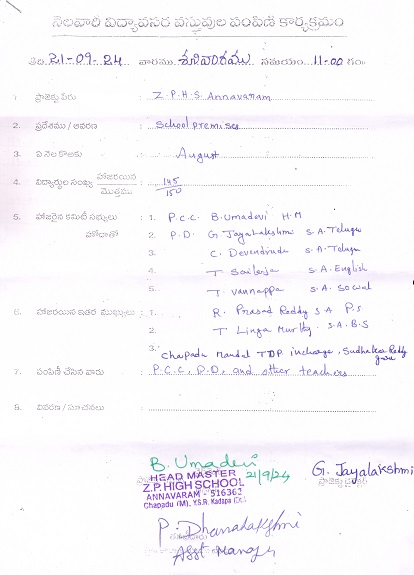 నెలవారీ విద్యావసర వస్తువుల పంపిణీ కార్యక్రమం
తేది. 21-09-24 వారము శనివారము సమయం 11-00 గం.
1. ప్రాజెక్టు పేరు : Z.P.H.S. Annavaram
2. ప్రదేశము / ఆవరణ : School premises
3. ఏ నెల కొరకు : August
4. విద్యార్థుల సంఖ్య హాజరయిన / మొత్తము : 145 / 150
5. హాజరైన కమిటీ సభ్యులు : 1. P.C.C B. Umadevi H.M
హోదాతో 2. P.D. G. Jayalakshmi S.A. Telugu
3. C. Devendrudu S.A. Telugu
4. T Sailaja S.A. English
5. T Vannappa S.A. Social
6. హాజరయిన ఇతర ముఖ్యులు : 1. R. Prasad Reddy S A P.S
2. T Linga Murthy. S.A. B.S
3. Chapadu mandal TDP incharge, Sudhakar Reddy garu
7. పంపిణీ చేసిన వారు : P.C.C, P.D, and other teachers
8. వివరణ / సూచనలు :
B. Umadevi
21/9/24
HEAD MASTER
Z.P. HIGH SCHOOL
ANNAVARAM - 516363
Chapadu (M), Y.S.R. Kadapa (Dt.)
G. Jayalakshmi
ప్రాజెక్టు డైరెక్టర్
P. Dhanalakshmi
Asst Manager